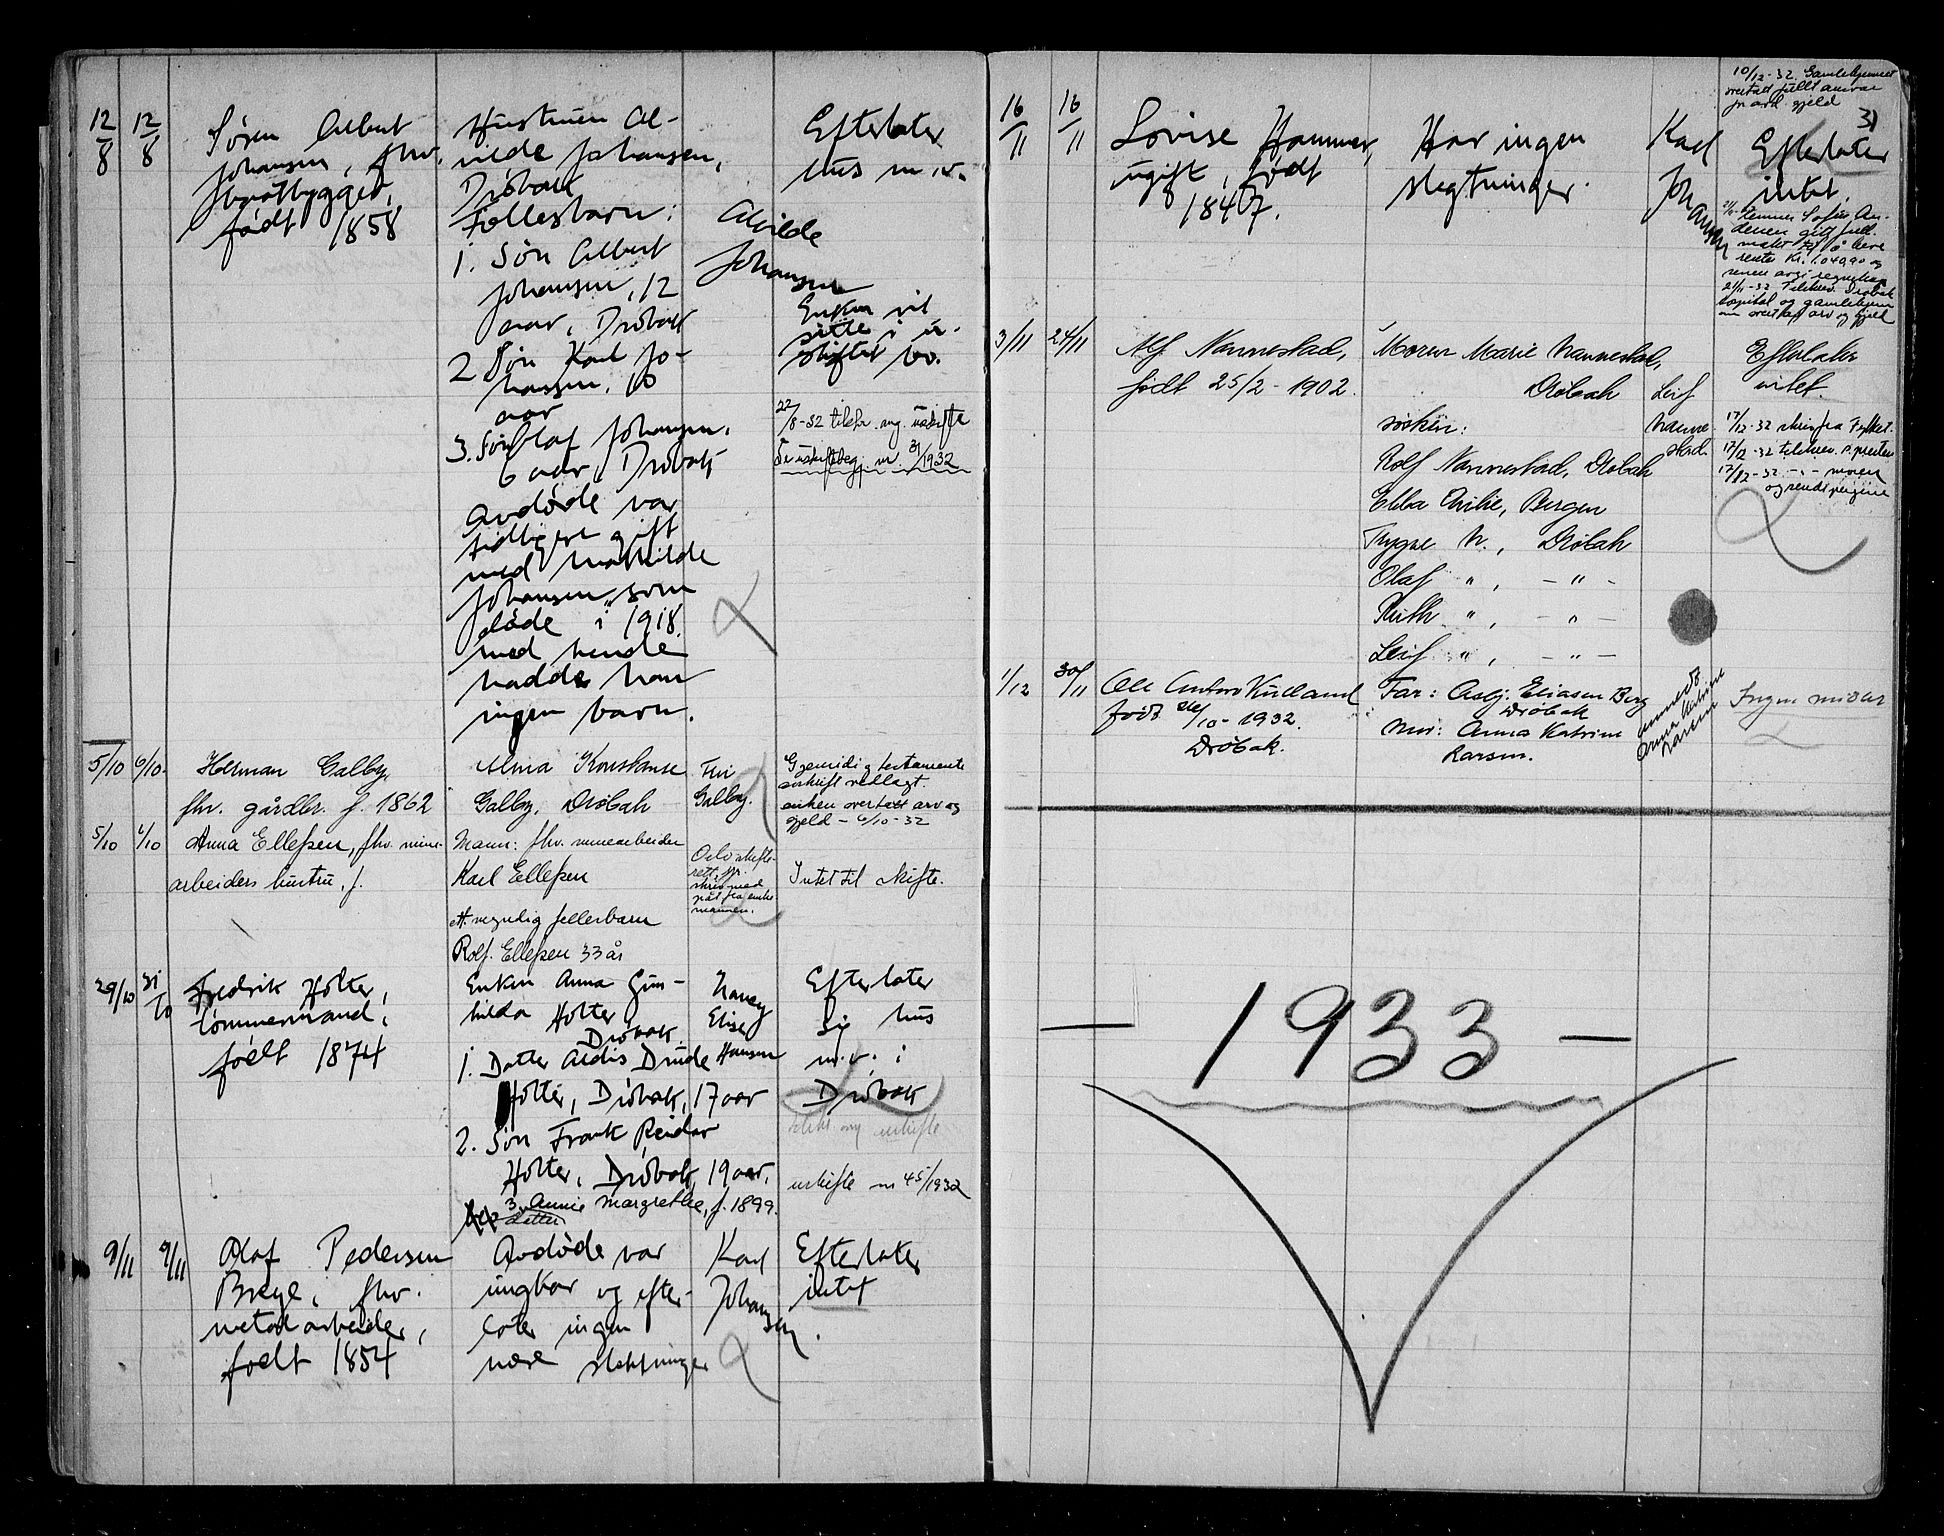 12/8 12/8 Søren Albert
Johansen, fhv.
baatbygger,
født 1858
Hustruen Al-
vilde Johansen,
Drøbak
Fellesbarn:
1. Søn Albert
Johansen, 12
aar, Drøbak
2 Søn Karl Jo-
hansen, 10
aar
3. Søn Olaf Johansen,
6 aar, Drøbak
Avdøde var
tidligere gift
med Mathilde
Johansen, som
døde i 1918.
med hende
hadde han
ingen barn.
Alvilde
Johansen
Efterlater
hus m.v.
Enken vil
sitte i u-
skiftet bo.
22/8-32 telefr. ang. uskifte
Se uskiftebeg. nr 31/1932
5/10 6/10- Herman Galby,
fhv. gårdbr. f. 1862
Alma Konstanse
Galby, Drøbak
Galby.
Gjensidig testamente
avskrift vedlagt.
enken overtatt arv og
gjeld - 6/10-32
5/10 6/10 Anna Ellefsen, fhv. mine-
arbeiders hustru, f.
Mann: fhv. minearbeider
Karl Ellefsen
et myndig fellesbarn
Rolf Ellefsen 33 år
Oslo skifte-
rett
mannen.
Intet til skifte.
29/10 31/10 Fredrik Holter,
tømmermand,
født 1874
Enken Anna Gun-
hilda Holter
Drøbak
1. Datter Aldis Drude
Holter, Drøbak, 17 aar
2. Søn Frank Reidar
Holter, Drøbak, 19 aar.
3. Annie Margrethe, f. 1899.
datter
Nancy
Elise
Hansen
Efterlater
sig hus
m.v. i
Drøbak
uskifte nr 45/1932
9/11 9/11 Olaf Pedersen
Brege, fhv.
metalarbeider,
født 1854
Avdøde var
ungkar og efter-
later ingen
nære slektninger
Karl
Johansen
Efterlater
intet
10/12-32. Gamlehjemmet
overtatt fullt ansvar
for arv. gjeld
31
16/11 16/11 Lovise Hammer,
ugift, født
1847.
Har ingen
slegtninger.
Karl
Johansen
Efterlater
intet.
21/11-32 Telskrev. Drøbak
hospital og gamlehjem
om overtatt arv og gjeld
3/11 24/11 Alf Nannestad,
født 25/2-1902.
Moren Marie Nannestad,
Drøbak
søsken:
Rolf Nannestad, Drøbak
Ebba Emilie, Bergen
Trygve N., Drøbak
Olaf " , - " -
Ruth " , - " -
Leif " , - " -
Leif
Nanne-
stad.
Efterlater
intet.
17/12-32 skriv fra Fylket.
17/12-32 telskrev. s. presten
17/12-32 -"- moren
og sendt pengene
1/12 30/11 Ole Antoni Kulland
født 26/10-1932.
Drøbak.
Far: Asbj. Eliasen Berg
Drøbak
Mor: Anna Katrine
Larsen.
Anna Katrine
Larsen
Ingen midler
— 1933 —